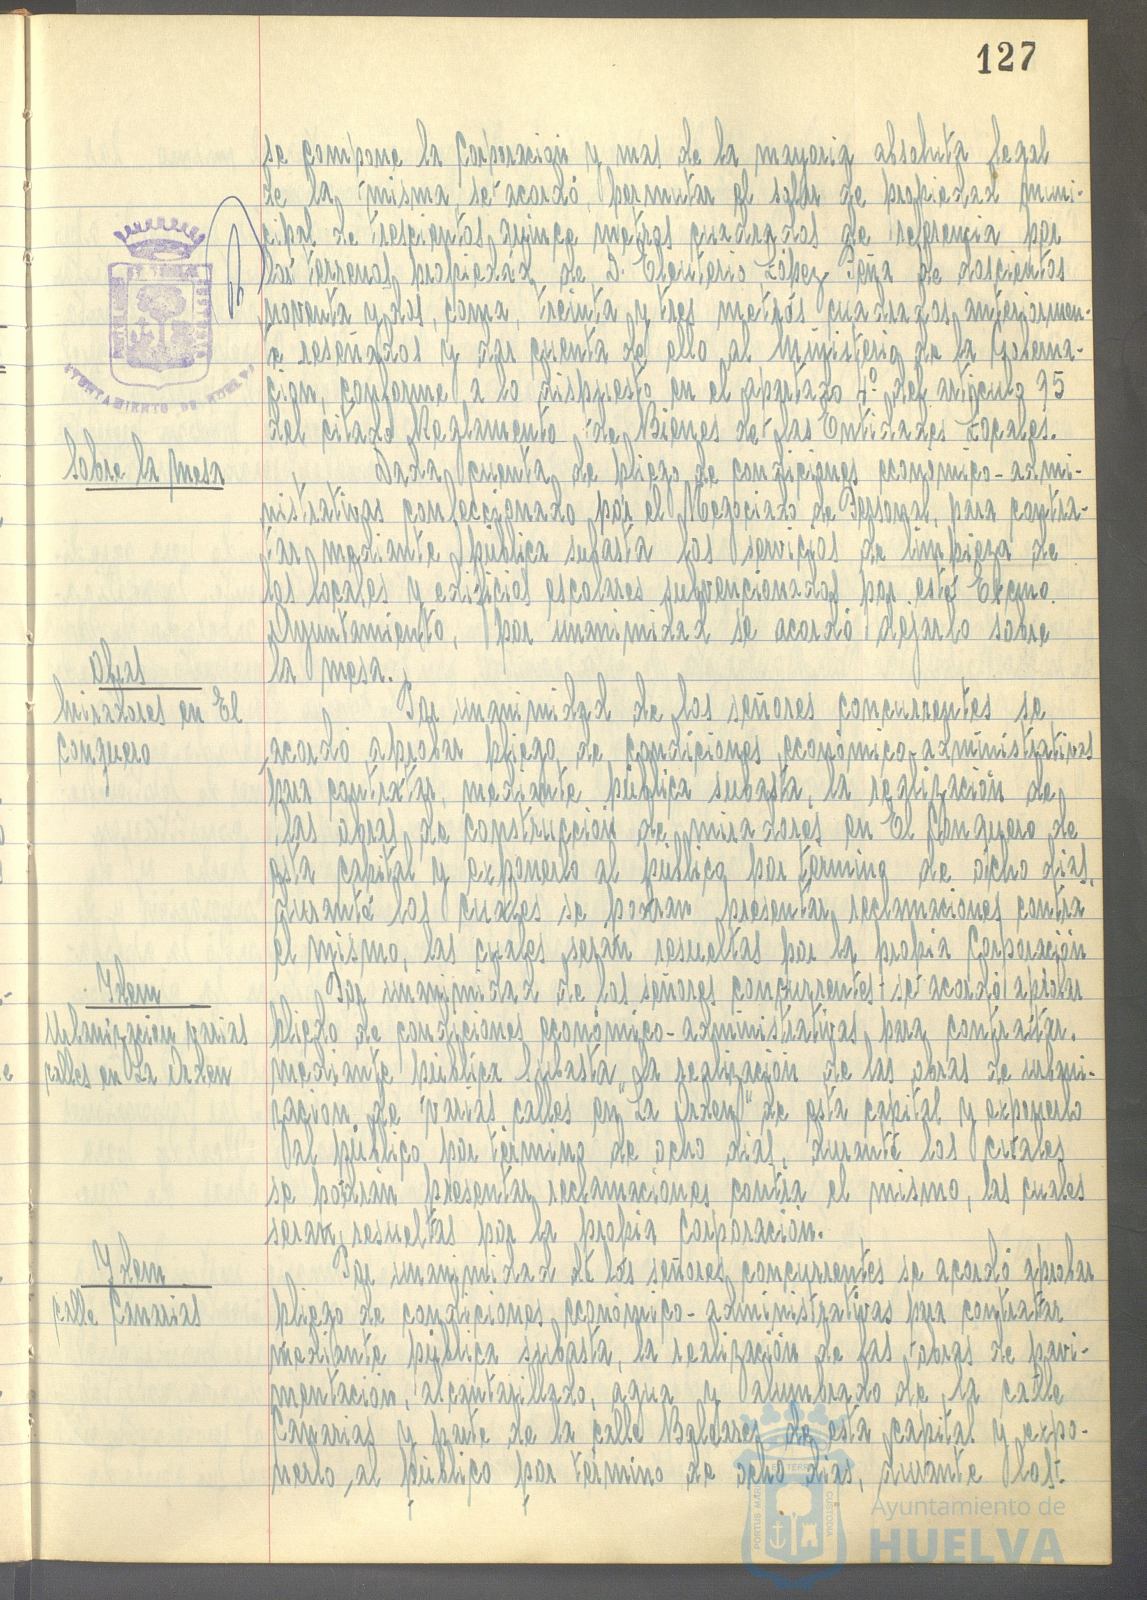 127
se compone la Corporación y mas de la mayoria absoluta legal
de la misma, se acordó, permutar el solar de propiedad muni-
cipal de trescientos quince metros cuadrados de referencia por
los terrenos propiedad de D. Eleuterio López Peña de doscientos
noventa y dos, coma, treinta y tres metros cuadrados anteriormen-
te reseñados y dar cuenta de ello al Ministerio de la Goberna-
ción, conforme a lo dispuesto en el apartado 4º del artículo 95
del citado Reglamento de Bienes de las Entidades Locales.
AYUNTAMIENTO DE HUELVA
Sobre la mesa
Dada cuenta de pliego de condiciones económico-admi-
nistrativas confeccionado por el Negociado de Personal, para contra-
tar mediante pública subasta los servicios de limpieza de
los locales y edificios escolares subvencionados por este Excmo.
Ayuntamiento, por unanimidad se acordó dejarlo sobre
la mesa.
Obras
Miradores en El
Conquero
Por unanimidad de los señores concurrentes se
acordó aprobar pliego de condiciones económico-administrativas
para contratar, mediante pública subasta, la realización de
las obras de construcción de miradores en El Conquero de
esta capital y exponerlo al público por término de ocho dias,
durante los cuales se podran presentar reclamaciones contra
el mismo, las cuales seran resueltas por la propia Corporación
Idem
Urbanización varias
calles en La Orden
Por unanimidad de los señores concurrentes se acordó aprobar
pliego de condiciones económico-administrativas para contratar.
mediante pública subasta, la realización de las obras de urbani-
zacion de varias calles en "La Orden" de esta capital y exponerlo
al público por término de ocho dias, durante los cuales
se podrán presentar reclamaciones contra el mismo, las cuales
seran resueltas por la propia Corporación.
Idem
calle Canarias
Por unanimidad de los señores concurrentes se acordó aprobar
pliego de condiciones económico-administrativas para contratar
mediante pública subasta, la realización de las obras de pavi-
mentación, alcantarillado, agua y alumbrado de la calle
Canarias y parte de la calle Baleares de esta capital y expo-
nerlo al público por término de ocho dias, durante los
Ayuntamiento de
HUELVA